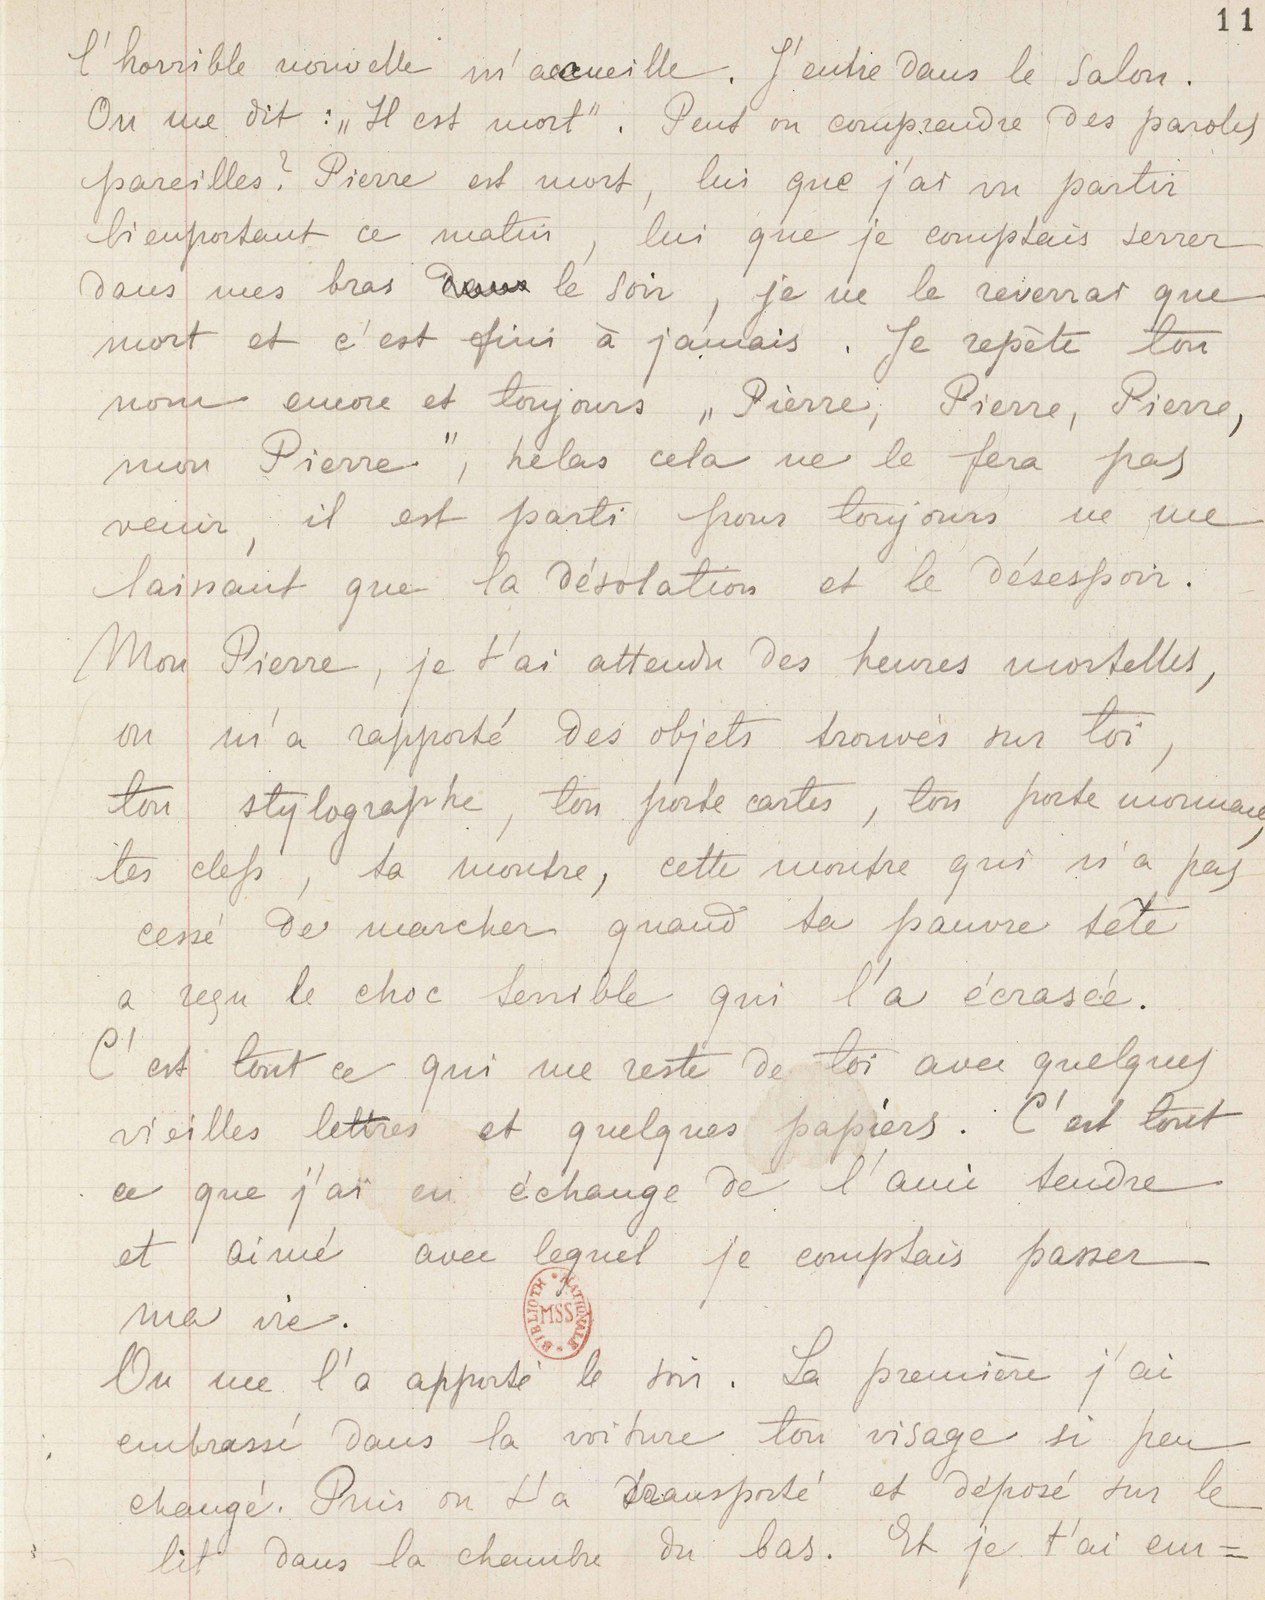 11
l'horrible nouvelle m'accueille. J'entre dans le salon.
On me dit : „Il est mort". Peut on comprendre des paroles
pareilles? Pierre est mort, lui que j'ai vu partir
bienportant ce matin, lui que je comptais serrer
dans mes bras le soir, je ne le reverrai que
mort et c'est fini à jamais. Je repète ton
nom encore et toujours „Pierre, Pierre, Pierre,
mon Pierre", hélas cela ne le fera pas
venir, il est parti pour toujours ne me
laissant que la désolation et le désespoir.
Mon Pierre, je t'ai attendu des heures mortelles,
on m'a rapporté des objets trouvés sur toi,
ton stylographe, ton porte cartes, ton porte monnaie,
tes clefs, ta montre, cette montre qui n'a pas
cessé de marcher quand ta pauvre tête
a reçu le choc terrible qui l'a écrasée.
C'est tout ce qui me reste de toi avec quelques
vieilles lettres et quelques papiers. C'est tout
ce que j'ai en échange de l'ami tendre
et aimé avec lequel je comptais passer
ma vie.
BIBLIOTH NATIONALE MSS
On me l'a apporté le soir. La première j'ai
embrassé dans la voiture ton visage si peu
changé. Puis on t'a transporté et déposé sur le
lit dans la chambre du bas. Et je t'ai em=